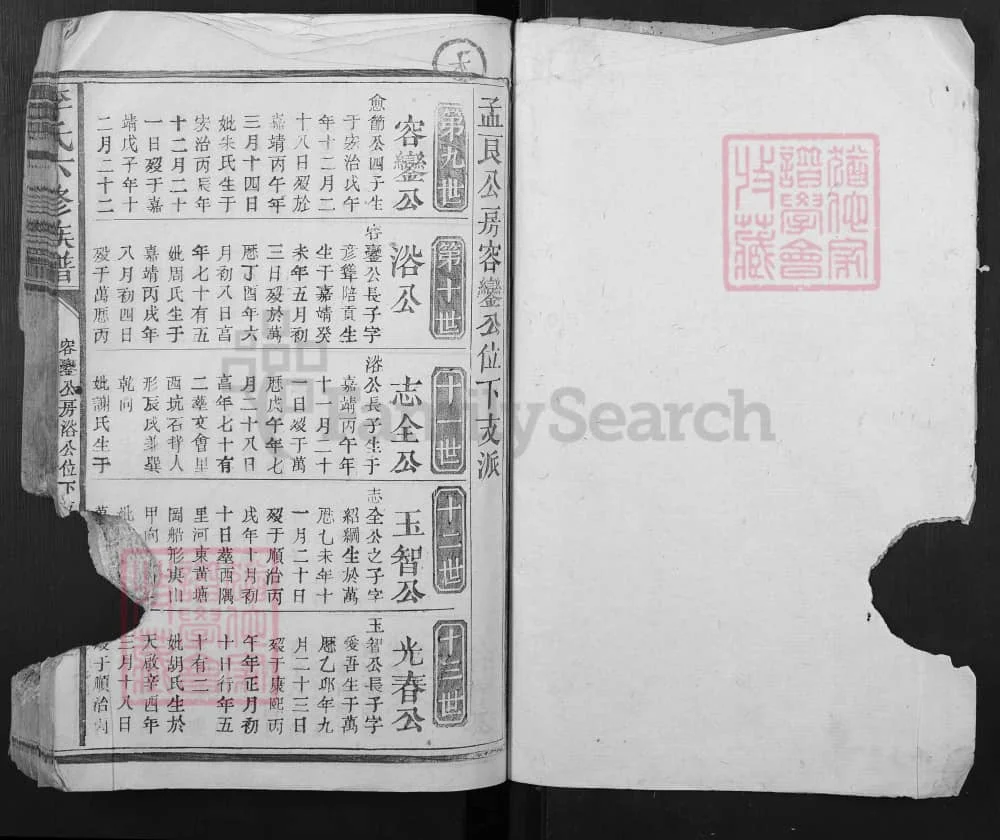 孟艮公房容鑾公位下支派
第九世
容鑾公
愈節公四子生
于宏治戊午
年十二月二
十八日歿於
嘉靖丙午年
三月十四日
妣朱氏生于
宏治丙辰年
十二月二十
一日歿于嘉
靖戊子年十
二月二十二
第十世
浴公
容鑾公長子字
彦聳陪貢生
生于嘉靖癸
未年五月初
三日歿於萬
厯丁酉年六
月初八日亯
年七十有五
妣周氏生于
嘉靖丙戌年
八月初四日
歿于萬厯丙
十一世
志全公
浴公長子生于
嘉靖丙午年
十一月二十
一日歿于萬
厯戊午年七
月二十八日
亯年七十有
二塟安會里
西坑石背人
形辰戌兼巽
乾向
妣謝氏生于
十二世
玉智公
志全公之子字
紹綱生於萬
厯乙未年十
一月二十日
歿于順治丙
戌年十月初
十日塟西隅
里河東黃塘
岡船形庚山
甲向
妣
萬
十三世
光春公
玉智公長子字
愛吾生于萬
厯乙邜年九
月二十三日
歿于康熙丙
午年正月初
十日行年五
十有二
妣胡氏生於
天啟辛酉年
三月十八日
歿于順治丙
李氏六修族譜
容鑾公房浴公位下
譜學會
特藏
FamilySearch